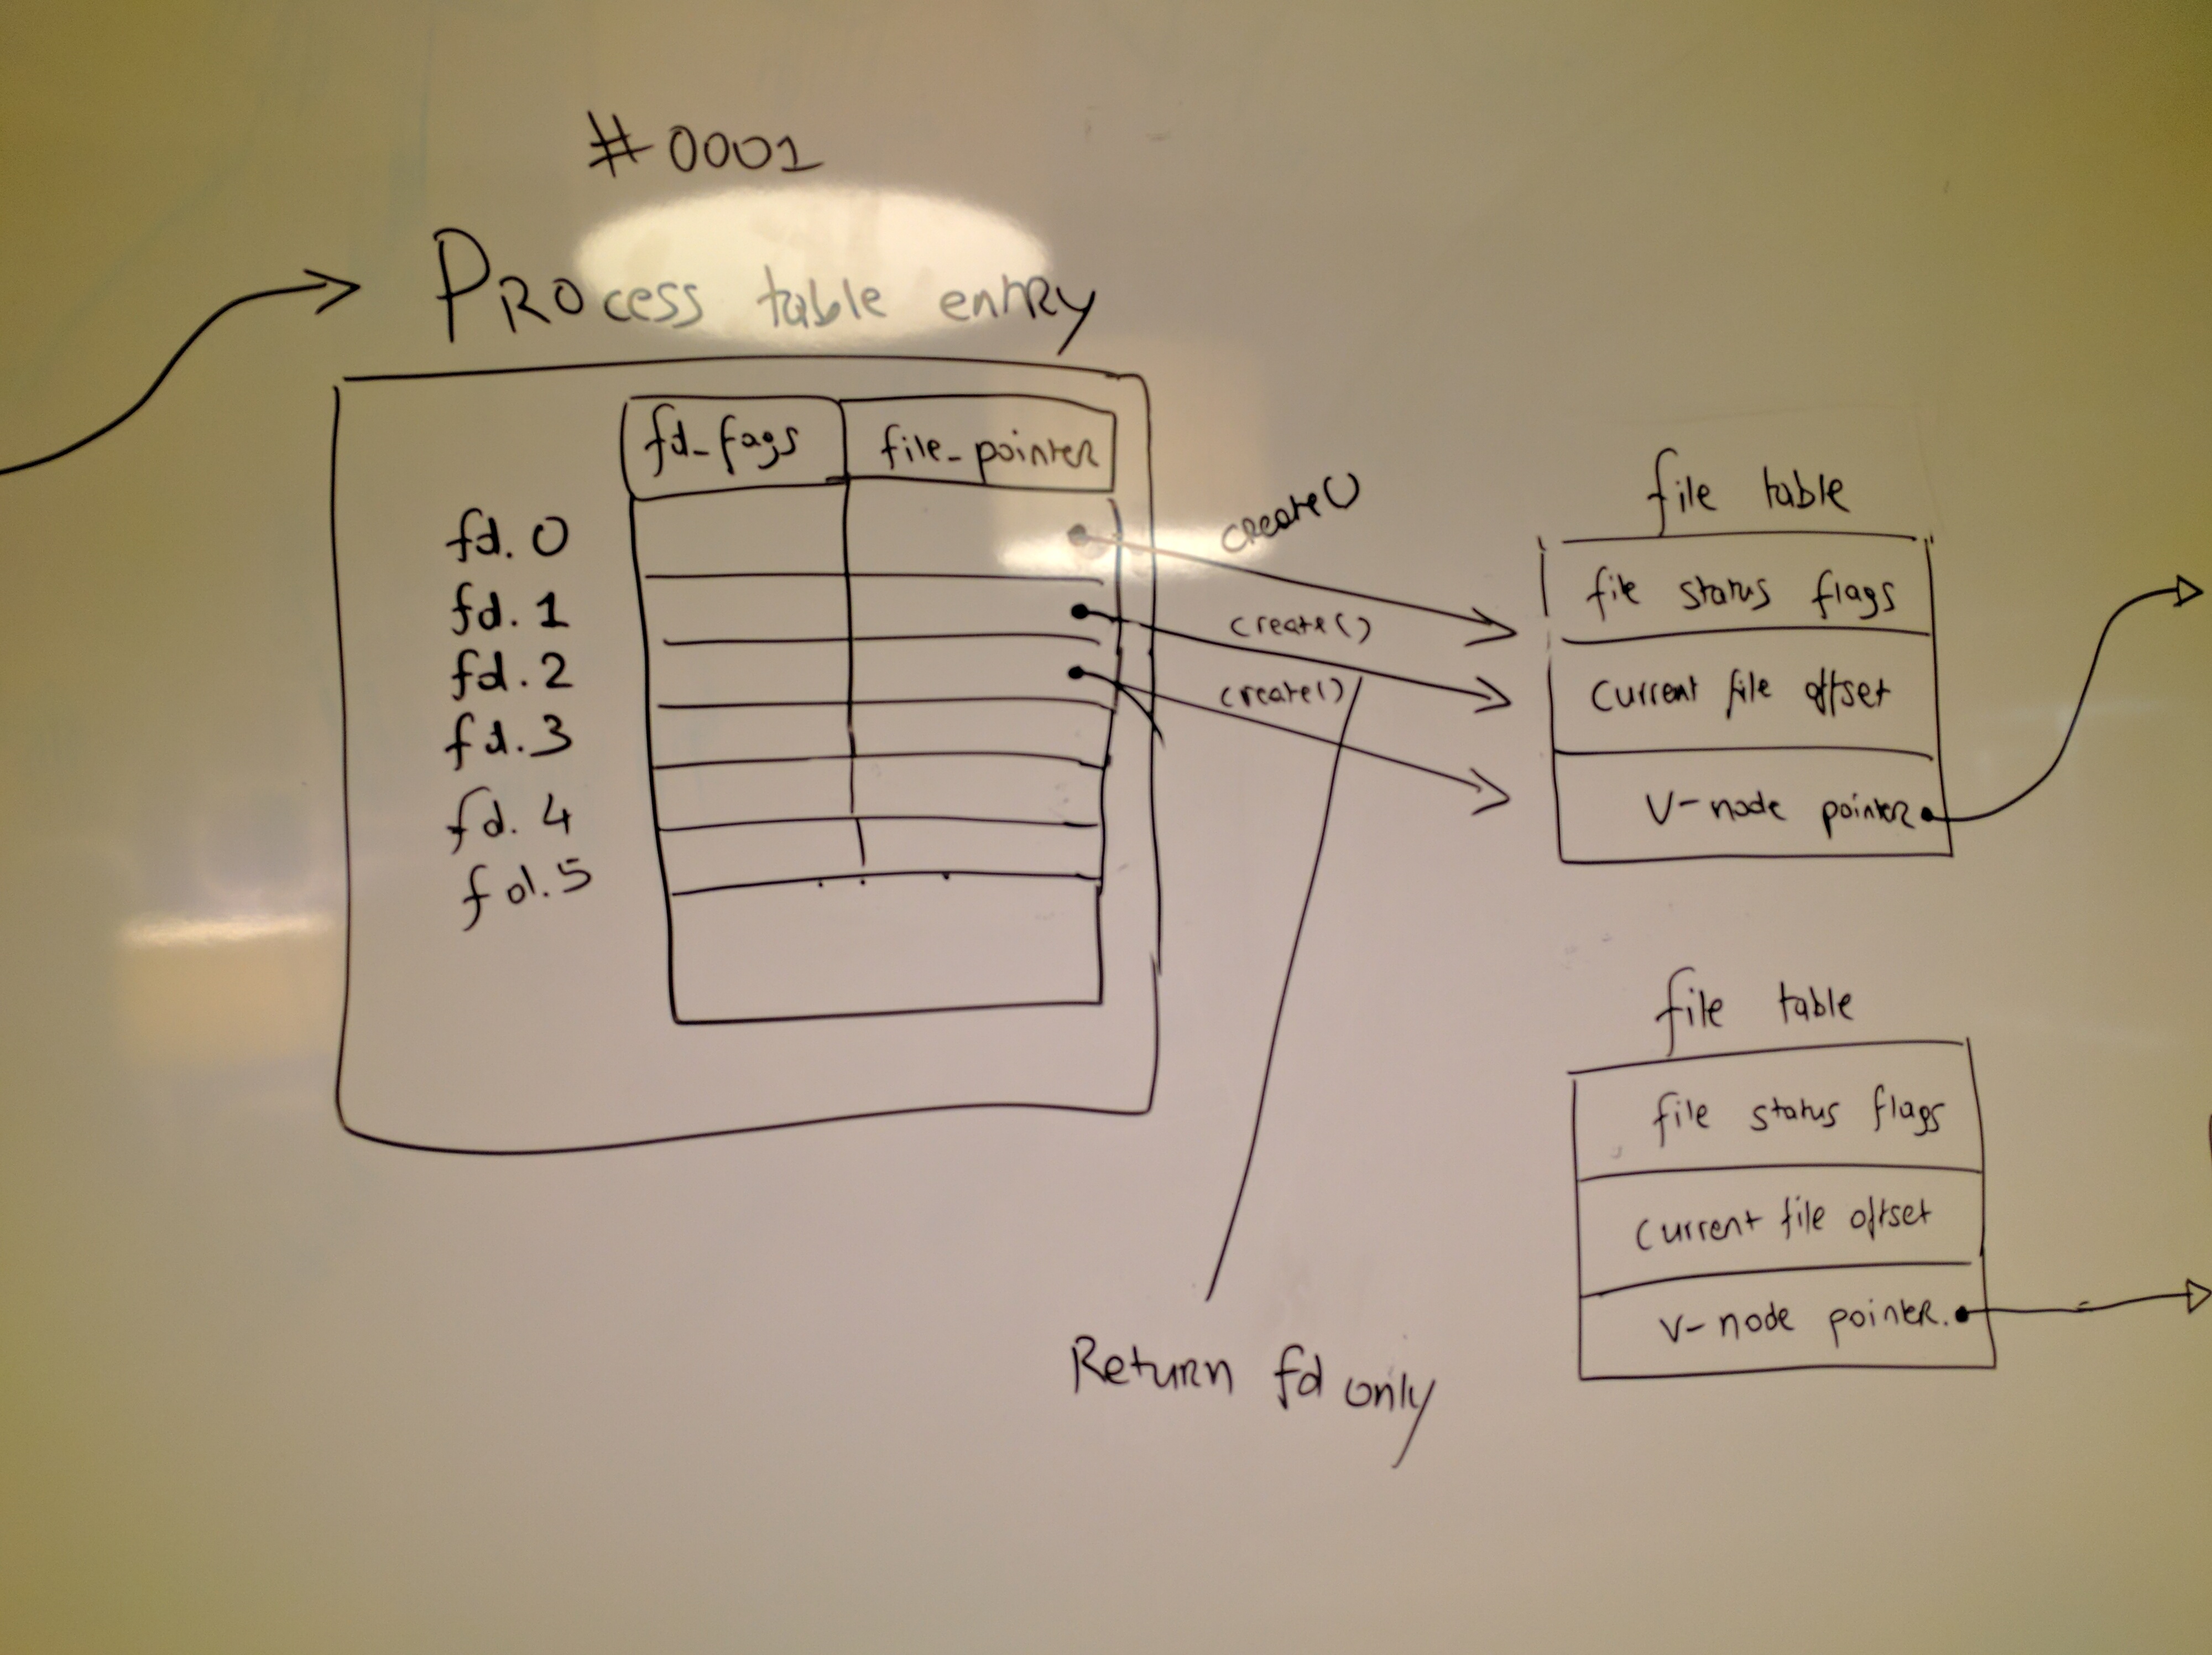 #0001
PROcess table entRy
fd_fags file_pointer
fd.0
fd.1
fd.2
fd.3
fd.4
fd.5
create()
create()
create()
Return fd only
file table
file status flags
Current file offset
V-node pointer
file table
file status flags
Current file offset
V-node pointer.